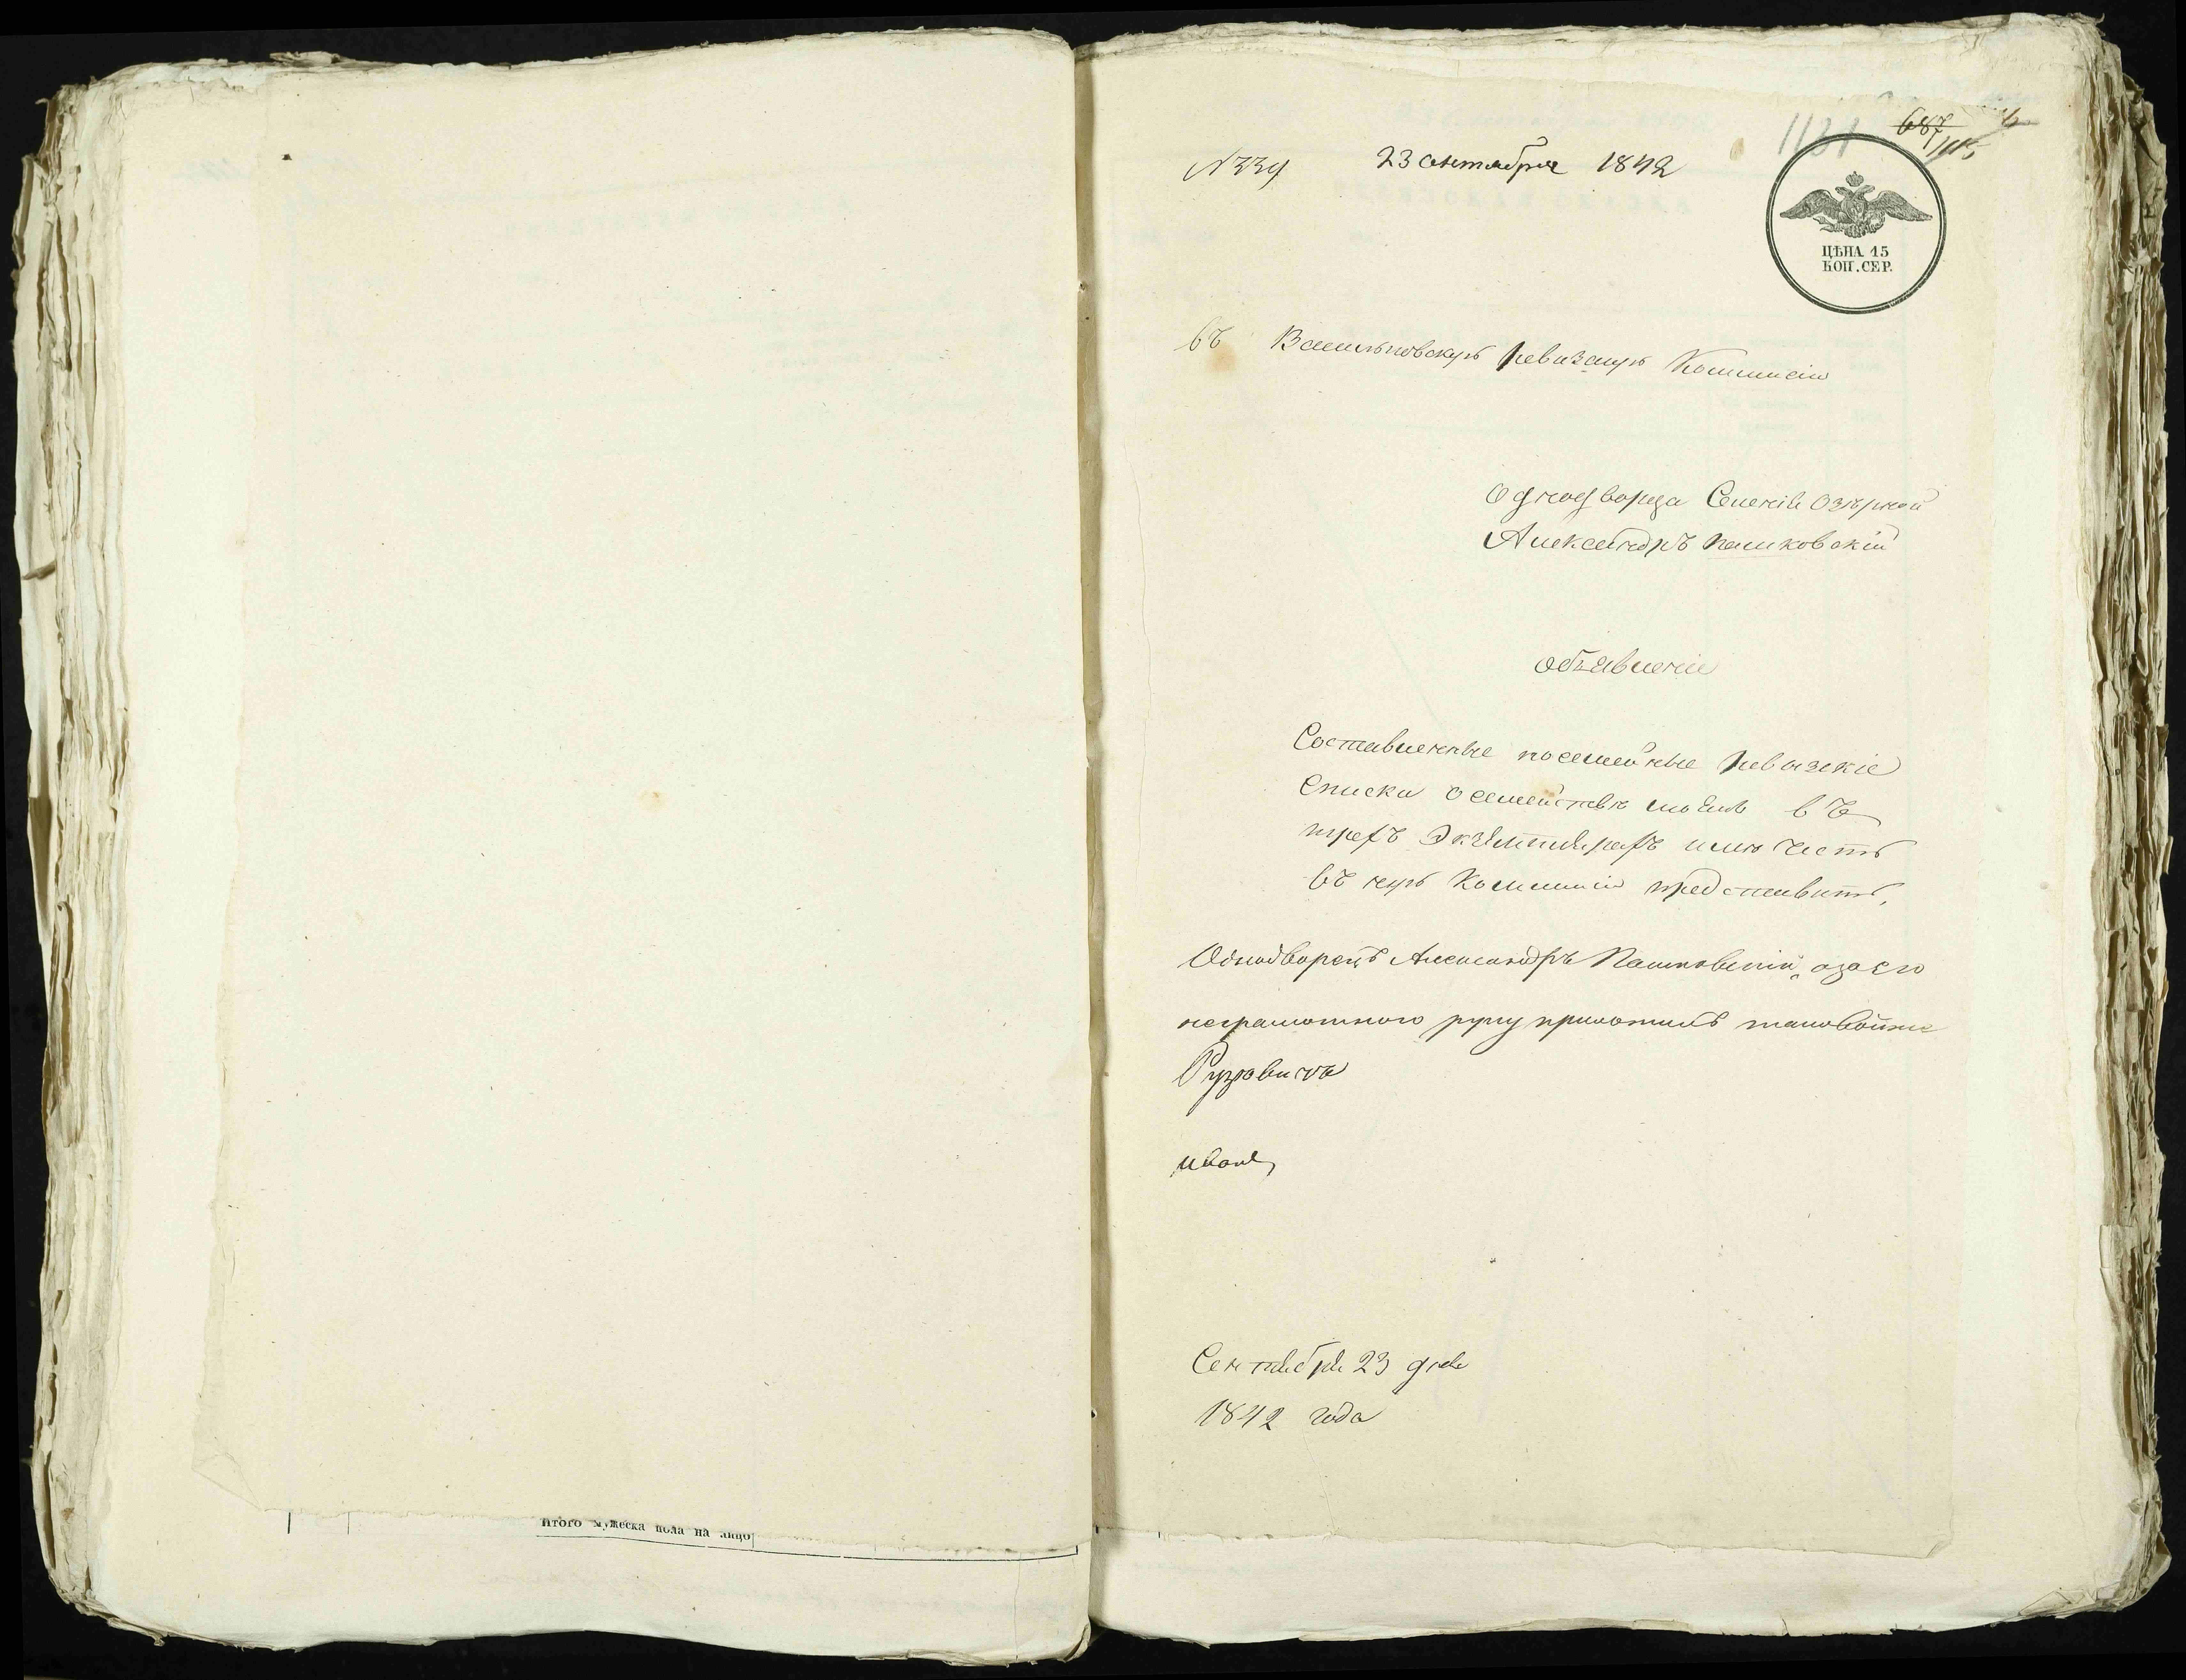 1131 687
N 339 23 сентября 1842
ЦѢНА 15
КОП. СЕР.
въ Васильковскую Ревизкую Коммисію
Однодворца Селенія Озѣрной
Александръ Пашковскій
объявленіе
Составленные посемейные Ревизскіе
Списки о семействѣ моемъ въ
трехъ Экземплярахъ имѣю честь
въ ную Коммисію представить,
Однодворецъ Александръ Пашковскій, а за его
неграмотного руку приложилъ таковойже
Иванъ
Сентября 23 дня
1842 года
Итого мужеска пола на лицо